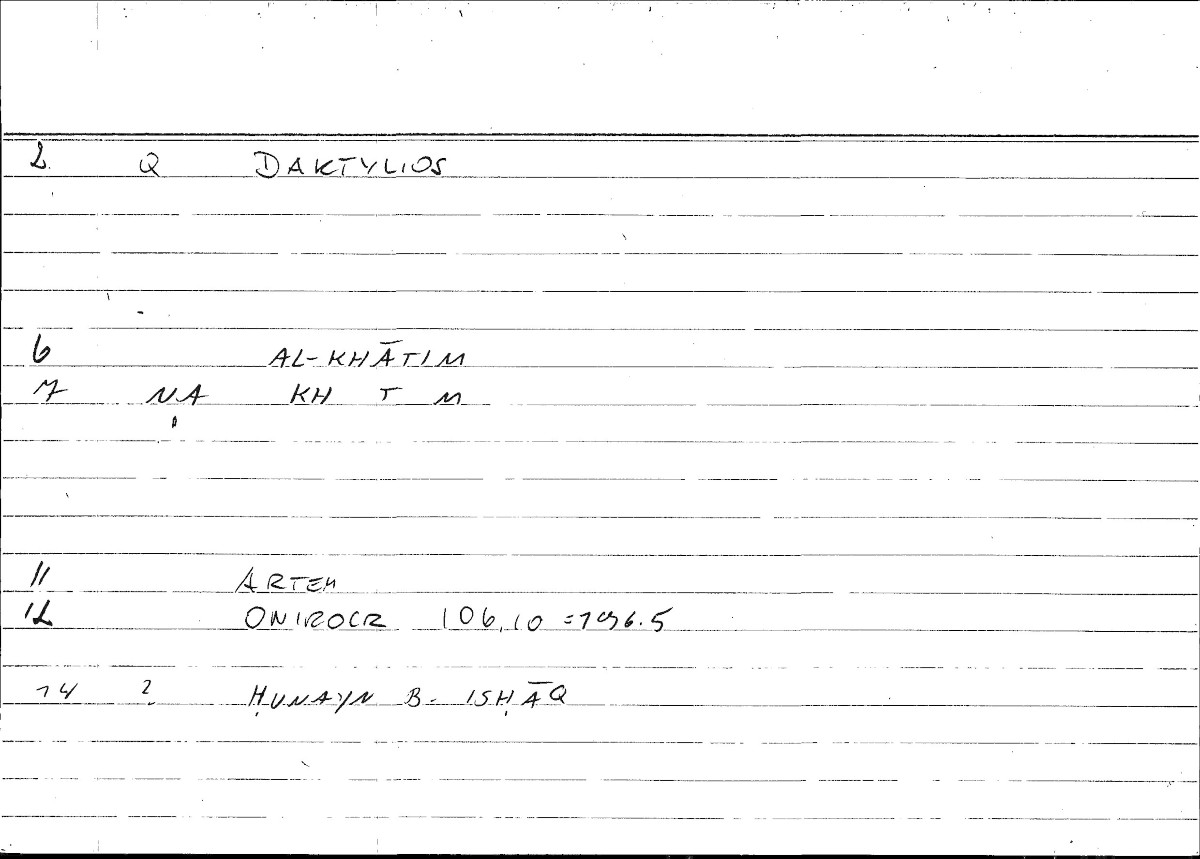 2 Q DAKTYLIOS
6 AL-KHĀTIM
7 NA KH T M
11 ARTEM
12 ONIROCR 106,10 =196.5
14 2. ḤUNAYN B- ISḤĀQ